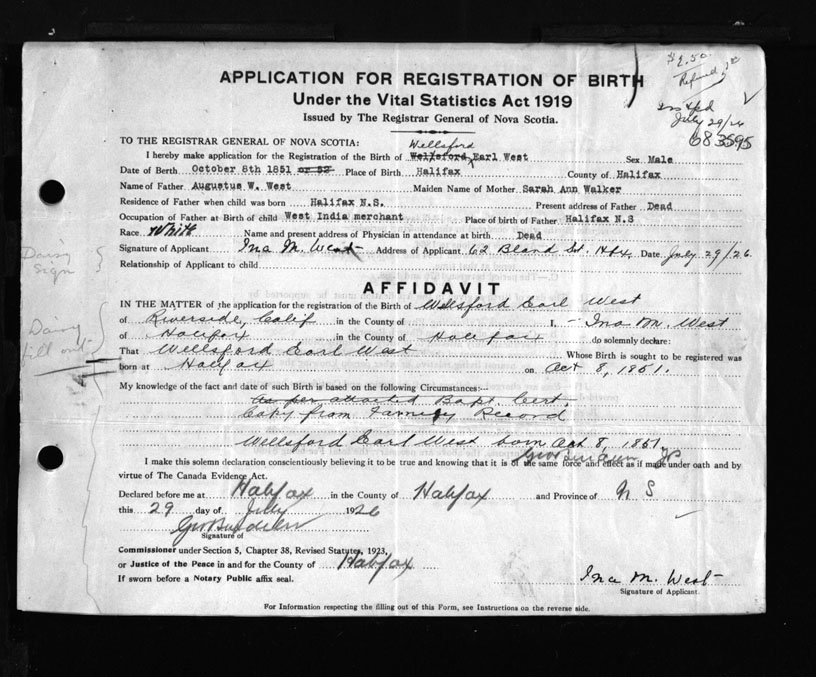 $2.50
Refund
APPLICATION FOR REGISTRATION OF BIRTH
Under the Vital Statistics Act 1919
Issued by The Registrar General of Nova Scotia.
July 29/26
683595
TO THE REGISTRAR GENERAL OF NOVA SCOTIA:
Wellsford
I hereby make application for the Registration of the Birth of Welxsford Earl West Sex Male
Date of Birth October 8th 1851 or 52 Place of Birth Halifax County of Halifax
Name of Father Augustus W. West Maiden Name of Mother Sarah Ann Walker
Residence of Father when child was born Halifax N.S. Present address of Father Dead
Occupation of Father at Birth of child West India merchant Place of birth of Father Halifax N.S
Race White Name and present address of Physician in attendance at birth Dead
Signature of Applicant Ina M. West Address of Applicant 62 Bland St. Hfx. Date July 29/26.
Relationship of Applicant to child
Daisy
Sign
AFFIDAVIT
IN THE MATTER of the application for the registration of the Birth of Wellsford Earl West
of Riverside, Calif in the County of I, Ina M. West
of Halifax in the County of Halifax do solemnly declare:
Daisy
fill out
That Wellsford Earl West Whose Birth is sought to be registered was
born at Halifax on Oct 8, 1851.
My knowledge of the fact and date of such Birth is based on the following Circumstances:--
As per attached Bapt. Cert.
Copy from Family Record
Wellsford Earl West born Oct 8, 1851.
I make this solemn declaration conscientiously believing it to be true and knowing that it is of the same force and effect as if made under oath and by
virtue of The Canada Evidence Act.
Declared before me at Halifax in the County of Halifax and Province of N S
this 29 day of July 1926
Signature of
Commissioner under Section 5, Chapter 38, Revised Statutes, 1923,
or Justice of the Peace in and for the County of Halifax
If sworn before a Notary Public affix seal.
Ina M. West
Signature of Applicant.
For Information respecting the filling out of this Form, see Instructions on the reverse side.